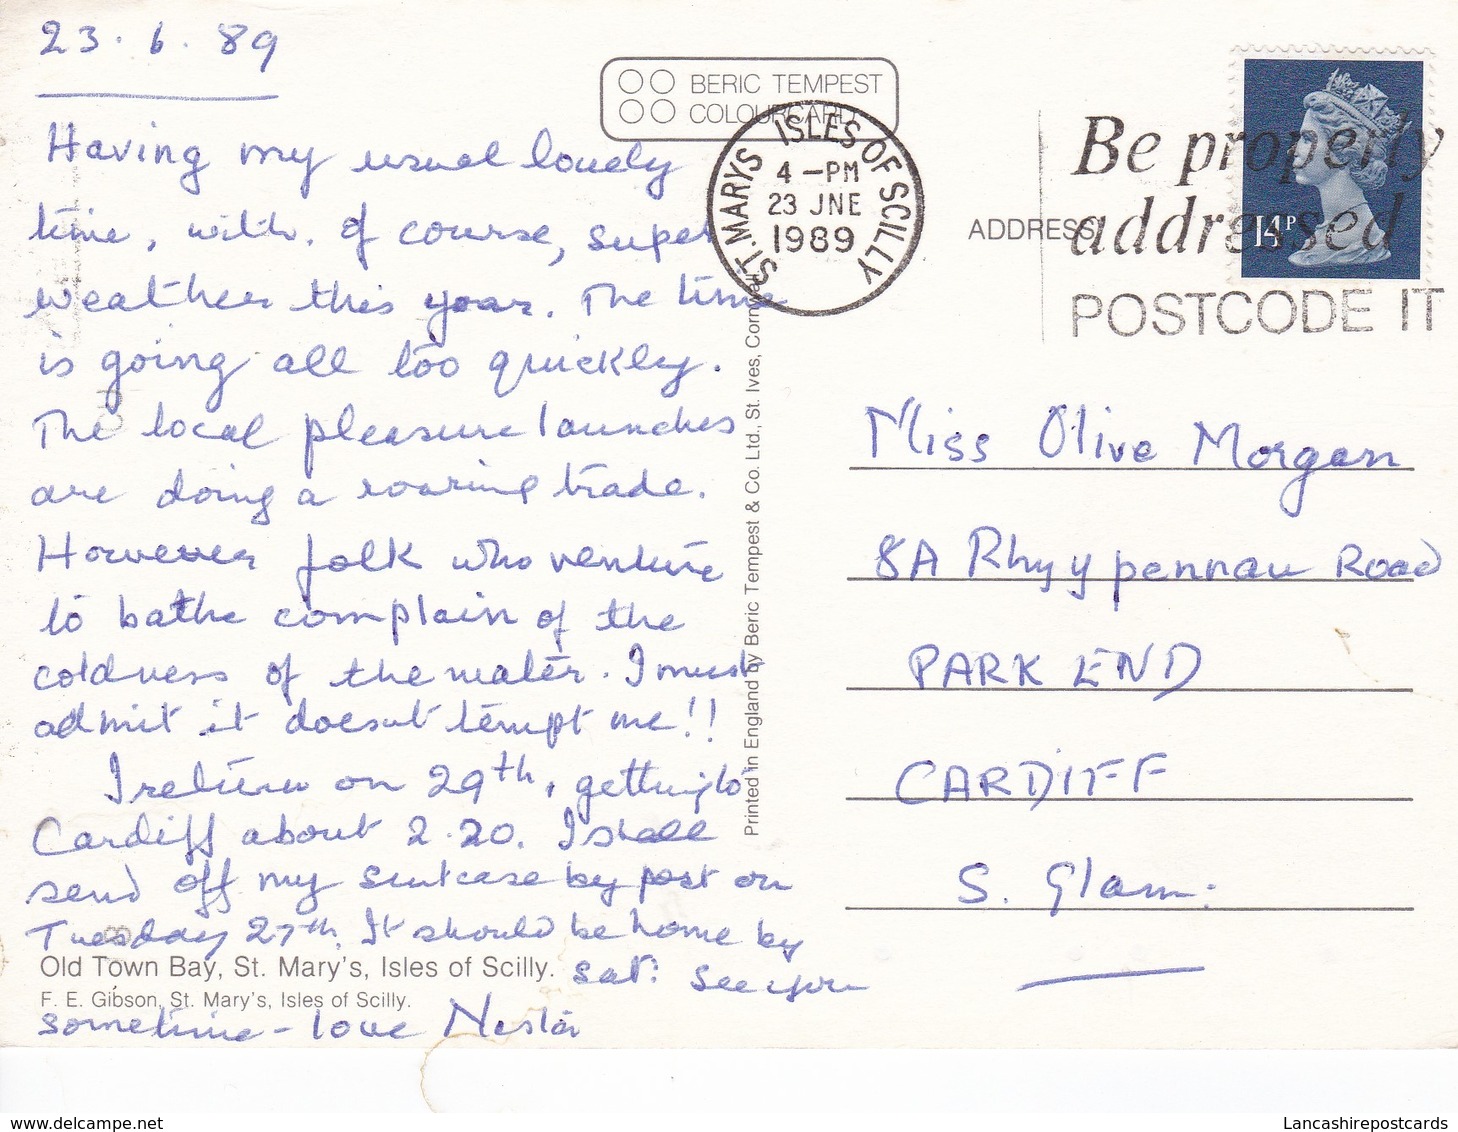 23.6.89
Having my usual lovely
time, with, of course, super
weather this year. The time
is going all too quickly.
The local pleasure launches
are doing a roaring trade.
However folk who venture
to bathe complain of the
coldness of the water. I must
admit it doesn't tempt me!!
I return on 29th, getting to
Cardiff about 2.20. I shall
send off my suitcase by post on
Tuesday 27th. It should be home by
Sat: See you
sometime - love Nesta
Old Town Bay, St. Mary's, Isles of Scilly.
F. E. Gibson, St. Mary's, Isles of Scilly.
BERIC TEMPEST
COLOURCARD
Printed in England by Beric Tempest & Co. Ltd., St. Ives, Cornwall
ST. MARYS ISLES OF SCILLY
4 - PM
23 JNE
1989
ADDRESS
Be properly
addressed
POSTCODE IT
14P
Miss Olive Morgan
8A Rhyypennau Road
PARK END
CARDIFF
S. Glam:
www.delcampe.net
Lancashirepostcards